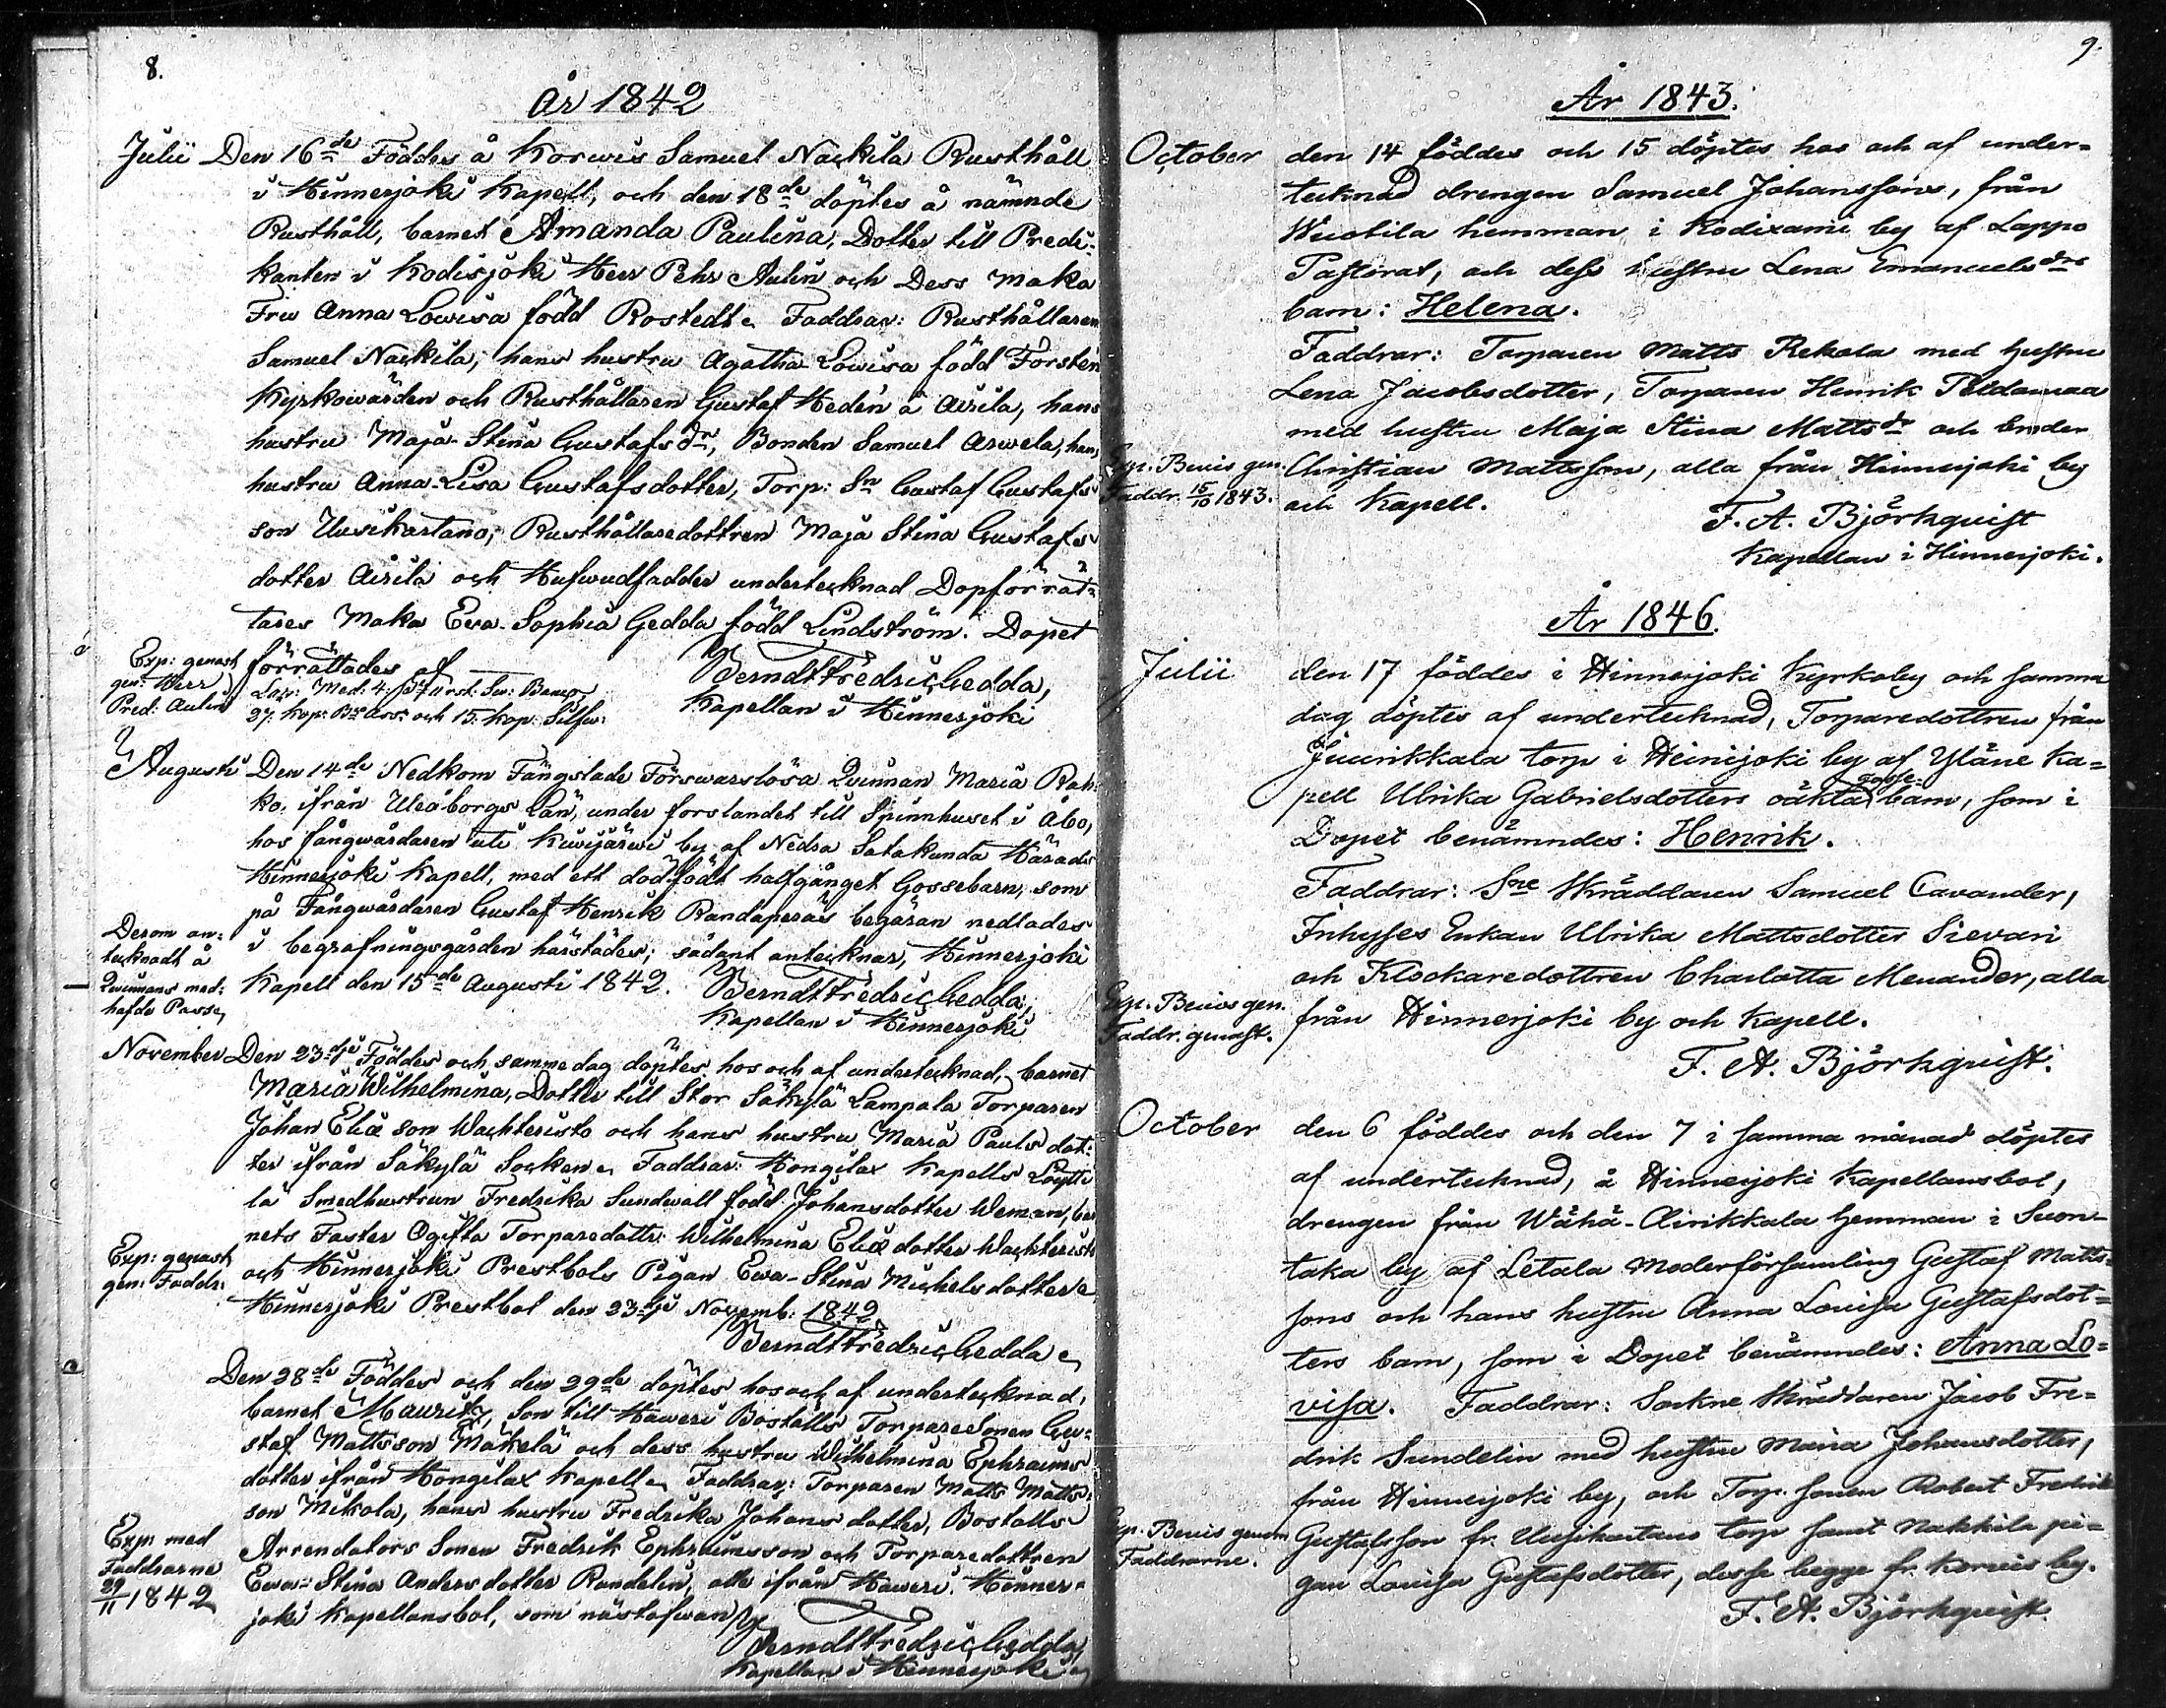 8.
År 1842
Julii Den 16de Föddes å Korwis Samuel Nackila Rusthåll
i Hinnerjoki Kapell, och den 18de döptes å nämnde
Rusthåll, barnet Amanda Paulina, Dotter till Predi-
kanten i Kodisjoki Herr Pehr Aulin och Dess Maka
Fru Anna Lowisa född Rostedt. Faddrar: Rusthållaren
Samuel Nackila, hans hustru Agatha Lowisa född Forsten
Kyrkowärden och Rusthållaren Gustaf Heden å Airila, hans
hustru Maja-Stina Gustafs dr, Bonden Samuel Arwela, hans
hustru Anna-Lisa Gustafsdotter, Torp: Sn Gustaf Gustafs
son Uusikartano, Rusthållaredottren Maja Stina Gustafs
dotter Airila och Hufwudfadder undertecknad Dopförrät-
tares Maka Ewa-Sophia Gedda född Lindström. Dopet
förrättades af
Exp: genast
gen: Herr
Pred: Aulin
27. Kop: och 15. Kop: Silfw:
Berndt Fredric Gedda,
Kapellan i Hinnerjoki
Augusti Den 14de Nedkom Fängslade Förswarslösa Qwinnan Maria Rah-
ko, ifrån Uleåborgs Län, under forslandet till Spinnhuset i Åbo,
hos fångwårdaren uti Kuwijärwi by af Nedra Satakunda Härads
Hinnerjoki Kapell, med ett dödfödt halfgånget Gossebarn, som
på Fångwårdaren Gustaf Henrik Randaperäs begäran nedlades
i begrafningsgården härstädes; sådant antecknar, Hinnerjoki
Kapell den 15de Augusti 1842.
Derom an-
tecknadt å
Qwinnans med-
hafde Passe
Berndt Fredric Gedda,
Kapellan i Hinnerjoki
November Den 23dje Föddes och samma dag döptes hos och af undertecknad, barnet
Maria Wilhelmina, Dotter till Stor Säkylä Lampala Torparen
Johan Eliæ son Wachteristo och hans hustru Maria Pauls dot-
ter ifrån Säkylä Socken. Faddrar: Hongilax Kapells Löytti
lä Smedhustrun Fredrika Sundwall född Johansdotter Weman, bar
nets Faster Ogifta Torparedottr: Wilhelmina Eliæ dotter Wachteristo
och Hinnerjoki Prestbols Pigan Ewa-Stina Michelsdotter
Hinnerjoki Prestbol den 23dje Novemb: 1842
Exp: genast
gen: Faddr:
Berndt Fredric Gedda
Den 28de Föddes och den 29de döptes hos och af undertecknad,
barnet Mauritz, Son till Haweri Boställs Torparesonen Gu-
staf Mattsson Mäkelä och dess hustru Wilhelmina Ephraims
dotter ifrån Hongilax Kapell. Faddrar: Torparen Matts Matts-
son Mikola, hans hustru Fredrika Johans dotter, Boställs
Arrendators Sonen Fredrik Ephraimsson och Torparedottren
Ewa-Stina Andersdotter Randelin, alle ifrån Haweri. Hinner-
joki Kapellansbol, som nästofwan
Exp: med
Faddrarne
29/11 1842
Berndt Fredric Gedda,
Kapellan i Hinnerjoki
9.
År 1843.
October den 14 föddes och 15 döptes hos och af under-
tecknad drengen Samuel Johanssons, från
Wuotila hemman i Kodixami by af Lappo
Pastorat, och dess hustru Lena Emanuelsdrs
barn: Helena.
Faddrar: Torparen Matts Rekola med hustru
Lena Jacobsdotter, Torparen Henrik Peldamaa
med hustru Maja Stina Mattsdr och
Christian Mattsson, alla från Hinnerjoki by
och Kapell.
Exp. Bevis gen.
Faddr. 15/10 1843.
F. A. Björkqvist
Kapellan i Hinnerjoki.
År 1846.
Julii den 17 föddes i Hinnerjoki Kyrkoby och samma
dag döptes af undertecknad, Torparedottren från
Juurikkala torp i Heinijoki by af Yläne Ka-
pell Ulrika Gabrielsdotters oäkta gosse-barn, som i
Dopet benämndes: Henrik.
Faddrar: Sne Skräddaren Samuel Cavander,
Inhyses Enkan Ulrika Mattsdotter Sievari
och Klockaredottren Charlotta Menander, alla
från Hinnerjoki by och Kapell.
Exp. Bevis gen.
Faddr. genast.
F. A. Björkqvist.
October den 6 föddes och den 7 i samma månad döptes
af undertecknad, å Hinnerjoki Kapellansbol,
drengen från Wähä-Airikkala hemman i Suon-
taka by af Letala Moderförsamling Gustaf Matts-
sons och hans hustru Anna Lovisa Gustafsdot-
ters barn, som i Dopet benämndes: Anna Lo-
visa. Faddrar: Sockne Skräddaren Jacob Fre-
drik Sundelin med hustru Maria Johansdotter,
från Hinnerjoki by, och Torp. sonen Robert Fredrik
Gustafsson fr. Uusikartano torp samt Nakkila pi-
gan Lovisa Gustafsdotter, desse begge fr. Korvis by.
Exp. Bevis genom
Faddrarne.
F. A. Björkqvist.